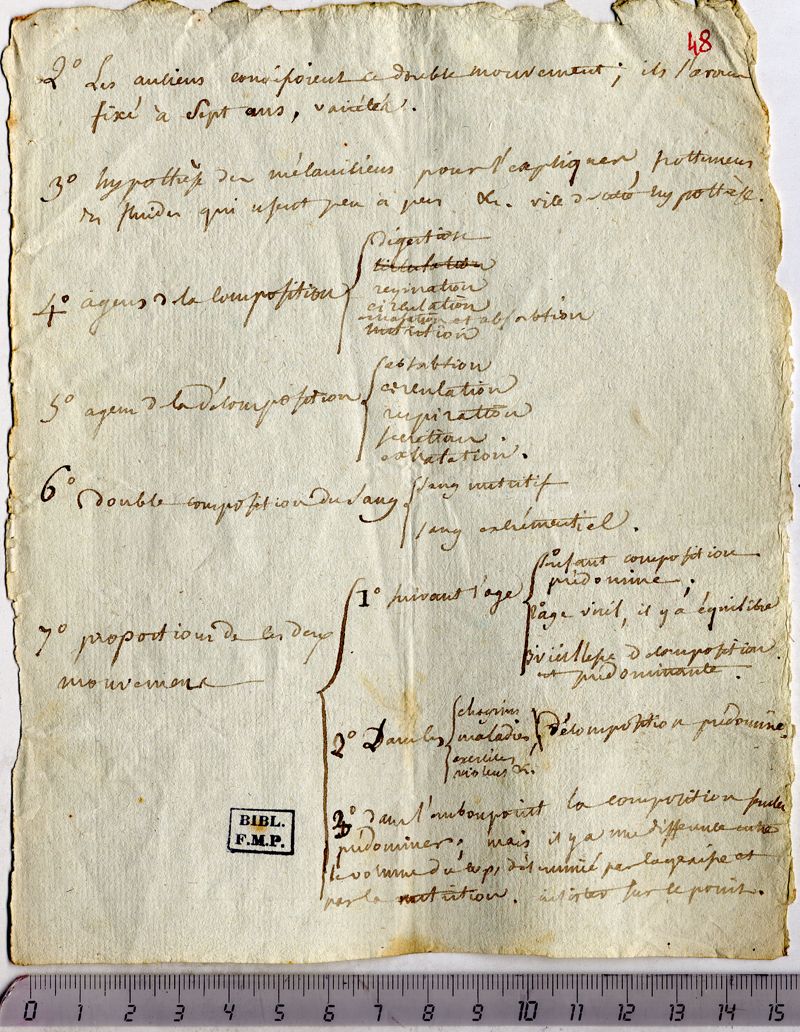 48
2° Les anciens connoissoient ce double mouvement ; ils l'avoient
fixé à sept ans, vanité.
3° hypothèse des mécaniciens pour l'expliquer, frottemens
des fluides qui usent peu à peu &c. vice de cette hypothèse.
4° agens de la composition
digestion
circulation
respiration
circulation
et absorbtion
nutrition
5° agens de la décomposition
absorbtion
circulation
respiration
secretion.
exhalation.
6° double composition du sang
sang nutritif
sang excrémentiel.
7° proportions de ces deux
mouvemens
1° suivant l'age
1° enfant composition
prédomine ;
2° age viril, il y a équilibre
3° vieillesse decomposition
est prédominante.
2° Dans les
chagrins
maladies
exercices
violens &c.
décomposition prédomine.
3° dans l'embonpoint la composition semble
prédominer ; mais il y a une difference entre
le volume du corps, déterminé par la graisse et
par la nutrition. insister sur ce point.
BIBL.
F.M.P.
0 1 2 3 4 5 6 7 8 9 10 11 12 13 14 15